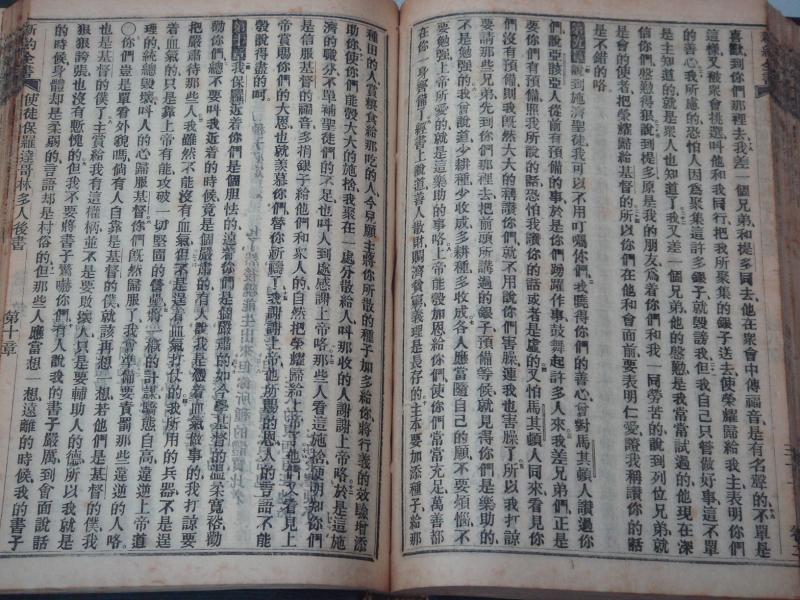 喜歡到你們那裡去、我差一個兄弟和提多同去、他在眾會中傳福音、是有名聲的、不單是
這樣、又被眾會挑選、叫他和我同行、把我所聚集的銀子送去、使榮耀歸給我主、表明你們
的善心、我所慮的、恐怕人因為聚集這許多銀子、就毀謗我、但我自己只管做好事、這不單
是主知道的、就是眾人也知道了、我又差一個兄弟、他的慇懃、是我常常試過的、他現在深
信你們、慇懃得狠、說到提多、原是我的朋友、為着你們和我一同勞苦的、說到列位兄弟、就
是會的使者、把榮耀歸給基督的、所以你們在他和會面前、要表明仁愛、證我稱讚你的話、
是不錯的咯、
第九章說到施濟聖徒、我可以不用叮囑你們、我曉得你們的善心、會對馬其頓人讚過你
們、說亞該亞人、從前有預備的事、於是你們踴躍作事、鼓舞起許多人來、我差兄弟們、正是
要你們有預備、照我所說的話、恐怕我讚你的話、或者是虛的、又怕馬其頓人同來、看見你
們沒有預備、則我既然大大的稱讚你們、就不用說你們害臊、連我也害臊了、所以我打諒
要請那些兄弟、先到你們那裡去、把前頭所講過的銀子、預備等候、就見得你們是樂助的、
不是勉強的、我會說道、少耕種、少收成、多耕種、多收成、各人應當隨自己的願、不要煩惱、不
要勉強、上帝所愛的、就是這樂助的事咯、上帝能彀加恩給你們、使你們常常充足、萬善都
在你一身齊備了、經書上說道、善人散財、賙濟貧窮、義理是長存的、主本要加添種子、給那
種田的人、賞糧食給那吃的人、今兒願主將你所散的種子、加多給你、將行義的效驗增添
助你、使你們能彀大大的施捨、我聚在一處、分散給人、叫那收的人、謝謝上帝咯、於是這施
濟的職分、不單補聖徒們的不足、也叫人到處感謝上帝咯、那些人看這施捨、便明知你們
是信服基督的福音、多捐銀子給他們和眾人的、自然把榮耀歸給上帝、他們又看見上
帝賞賜你們的大恩、也就羨慕你們、替你祈禱了、我謝謝上帝、他所賜的恩、人的言語不能
彀說得盡的呵、
第十章我保羅近着你們、是個胆怯的、遠着你們、是個嚴肅的、如今學基督的溫柔寬裕、勸
勸你們、總不要叫我近着的時候、竟是個嚴肅的、有人說我是憑着血氣做事的、我打諒要
把嚴肅待那些人、我雖然不能沒有血氣、但不是逞着血氣打仗的、我所用的兵器、不是逞
着血氣的、只是靠上帝有能攻破一切堅固的營壘、將一樣的計謀、驕態自高、違逆上帝道
理的、統總毀壞、叫人的心歸服基督、你們既然歸服了、我會準備要責罰那些違逆的人咯、
〇你們豈是單看外貌嗎、倘有人自靠是基督的僕、就該再想一想、若他們是基督的僕、我
也是基督的僕了、主賞給我有這權柄、並不是要敗壞人、只是要輔助人的德、所以我就是
狠狠誇張、也沒有慚愧的、但我不要將書子驚嚇你們、有人說我的書子嚴厲、到會面說話
的時候、身體却是柔弱的、言語却是村俗的、但那些人應當想一想、遠離的時候、我的書子
新約全書
使徒保羅達哥林多人後書
第十章